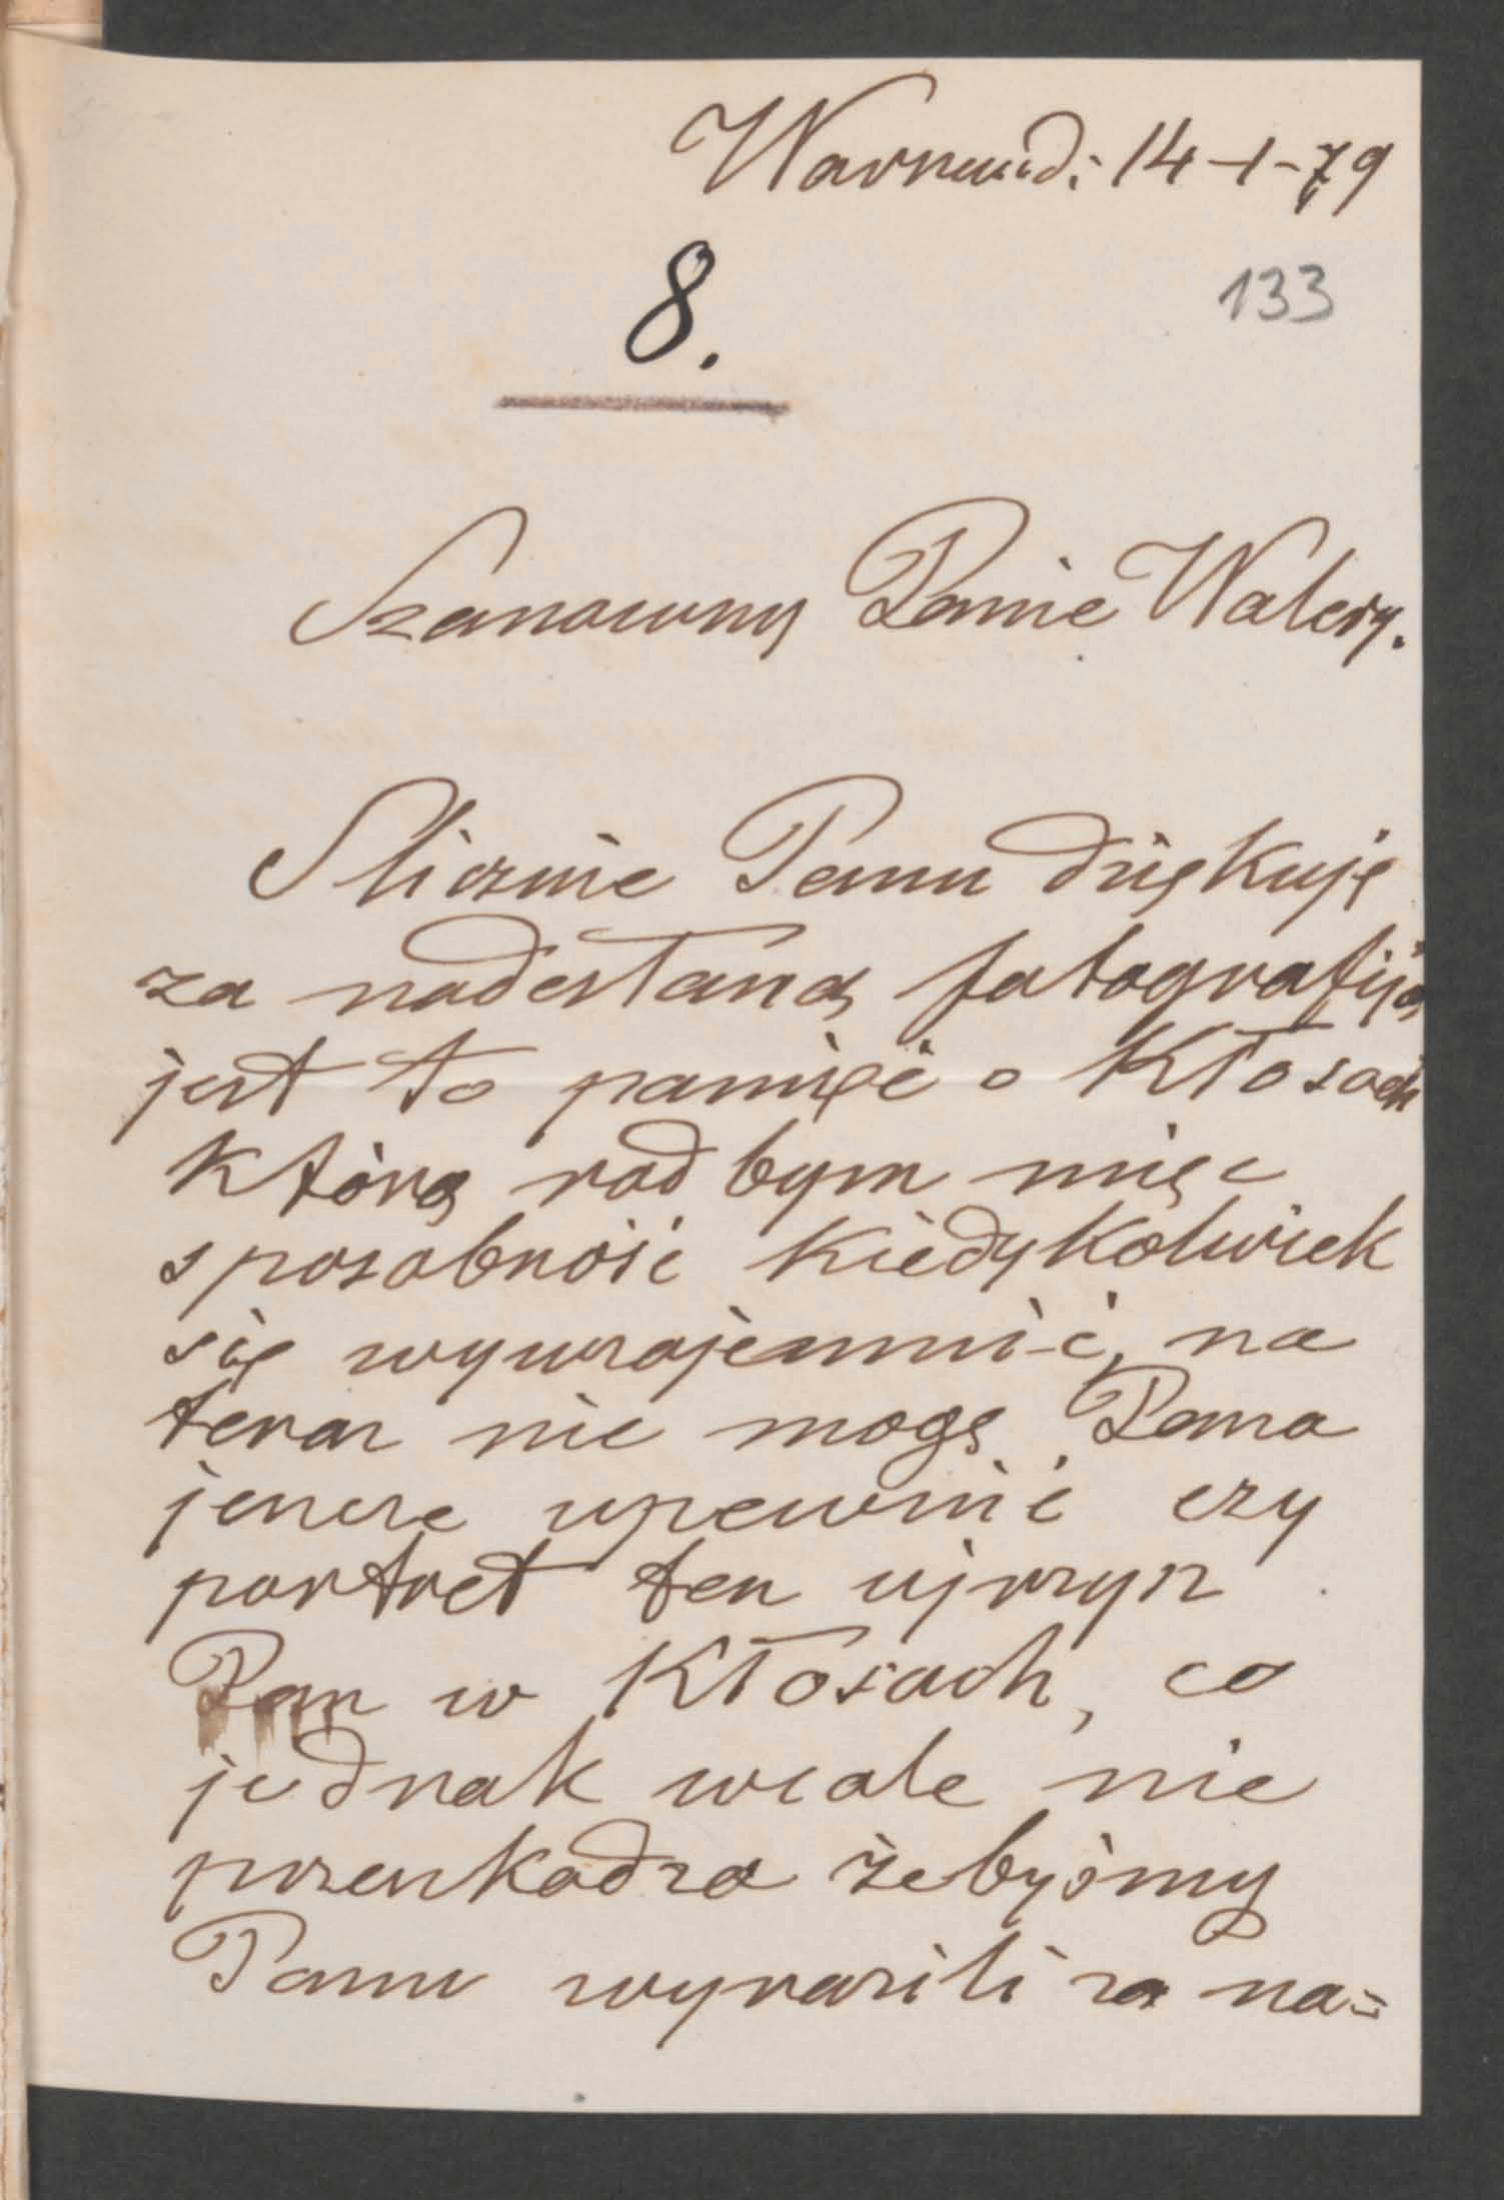 Warszawa d: 14-1-79
133
8.
Szanowny Panie Walery.
Slicznie Panu dziękuję
za nadesłaną fotografiją
jest to pamięć o Kłosach
którą rad bym mięc
sposobność kiedykolwiek
się wywzajemnić, na
teraz nie mogę Pana
jeszcze upewnić czy
portret ten ujrzysz
Pan w Kłosach, co
jednak wcale nie
przeszkadza żebyśmy
Panu wyrazili za na=